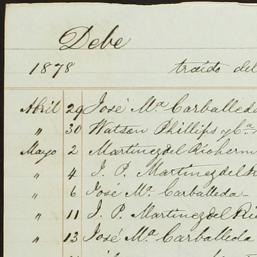 Debe
1878 traido del
Abril 29 José Ma. Carballeda
" 30 Watson Phillips y Ca.
Mayo 2 Martinez del Rio herm
" 4 J. P. Martinez del R
" 6 José Ma. Carballeda
" 11 J. P. Martinez del Ri
" 13 José Ma. Carballeda